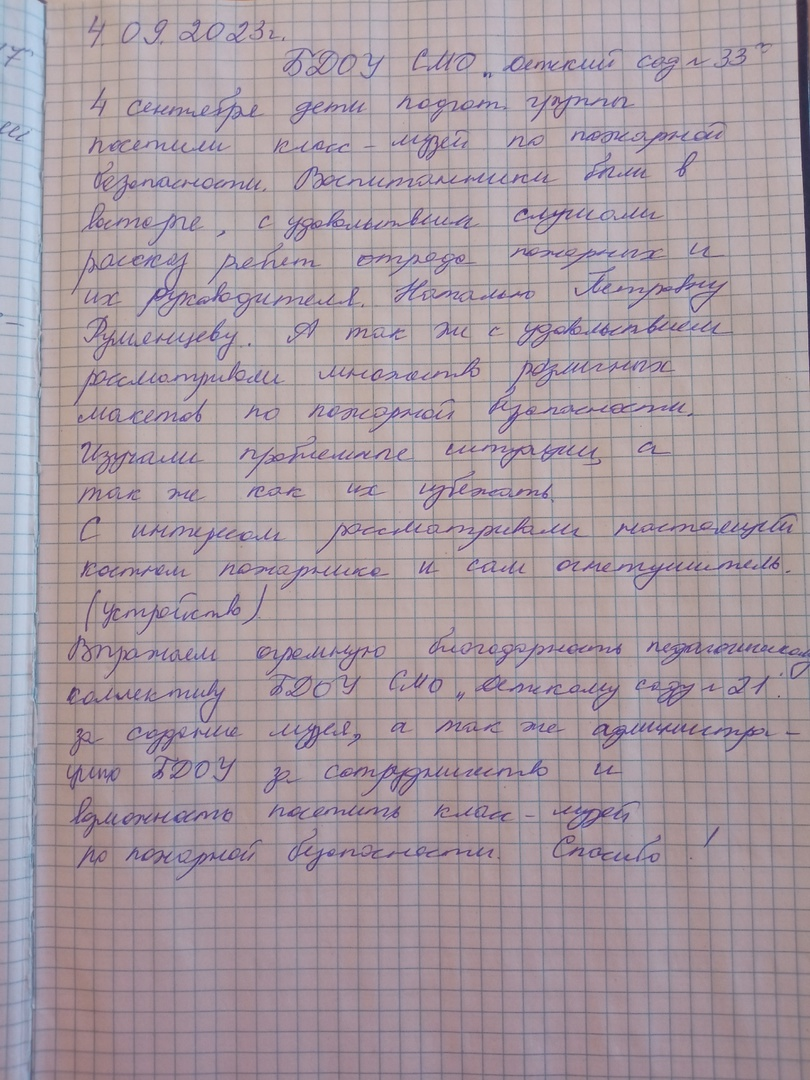 4. 09. 2023г.
БДОУ СМО „Детский сад №33"
4 сентября дети подгот. группы
посетили класс - музей по пожарной
безопасности. Воспитанники были в
восторге, с удовольствием слушали
рассказ ребят отряда пожарных и
их руководителя. Наталью Петровну
Румянцеву. А так же с удовольствием
рассматривали множество различных
макетов по пожарной безопасности.
Изучали проблемные ситуации, а
так же как их избежать.
С интересом рассматривали настоящий
костюм пожарника и сам огнетушитель.
(устройство)
Выражаем огромную благодарность педагогическому
коллективу БДОУ СМО „Детскому саду №21"
за создание музея, а так же администра-
цию БДОУ за сотрудничество и
возможность посетить класс - музей
по пожарной безопасности. Спасибо!